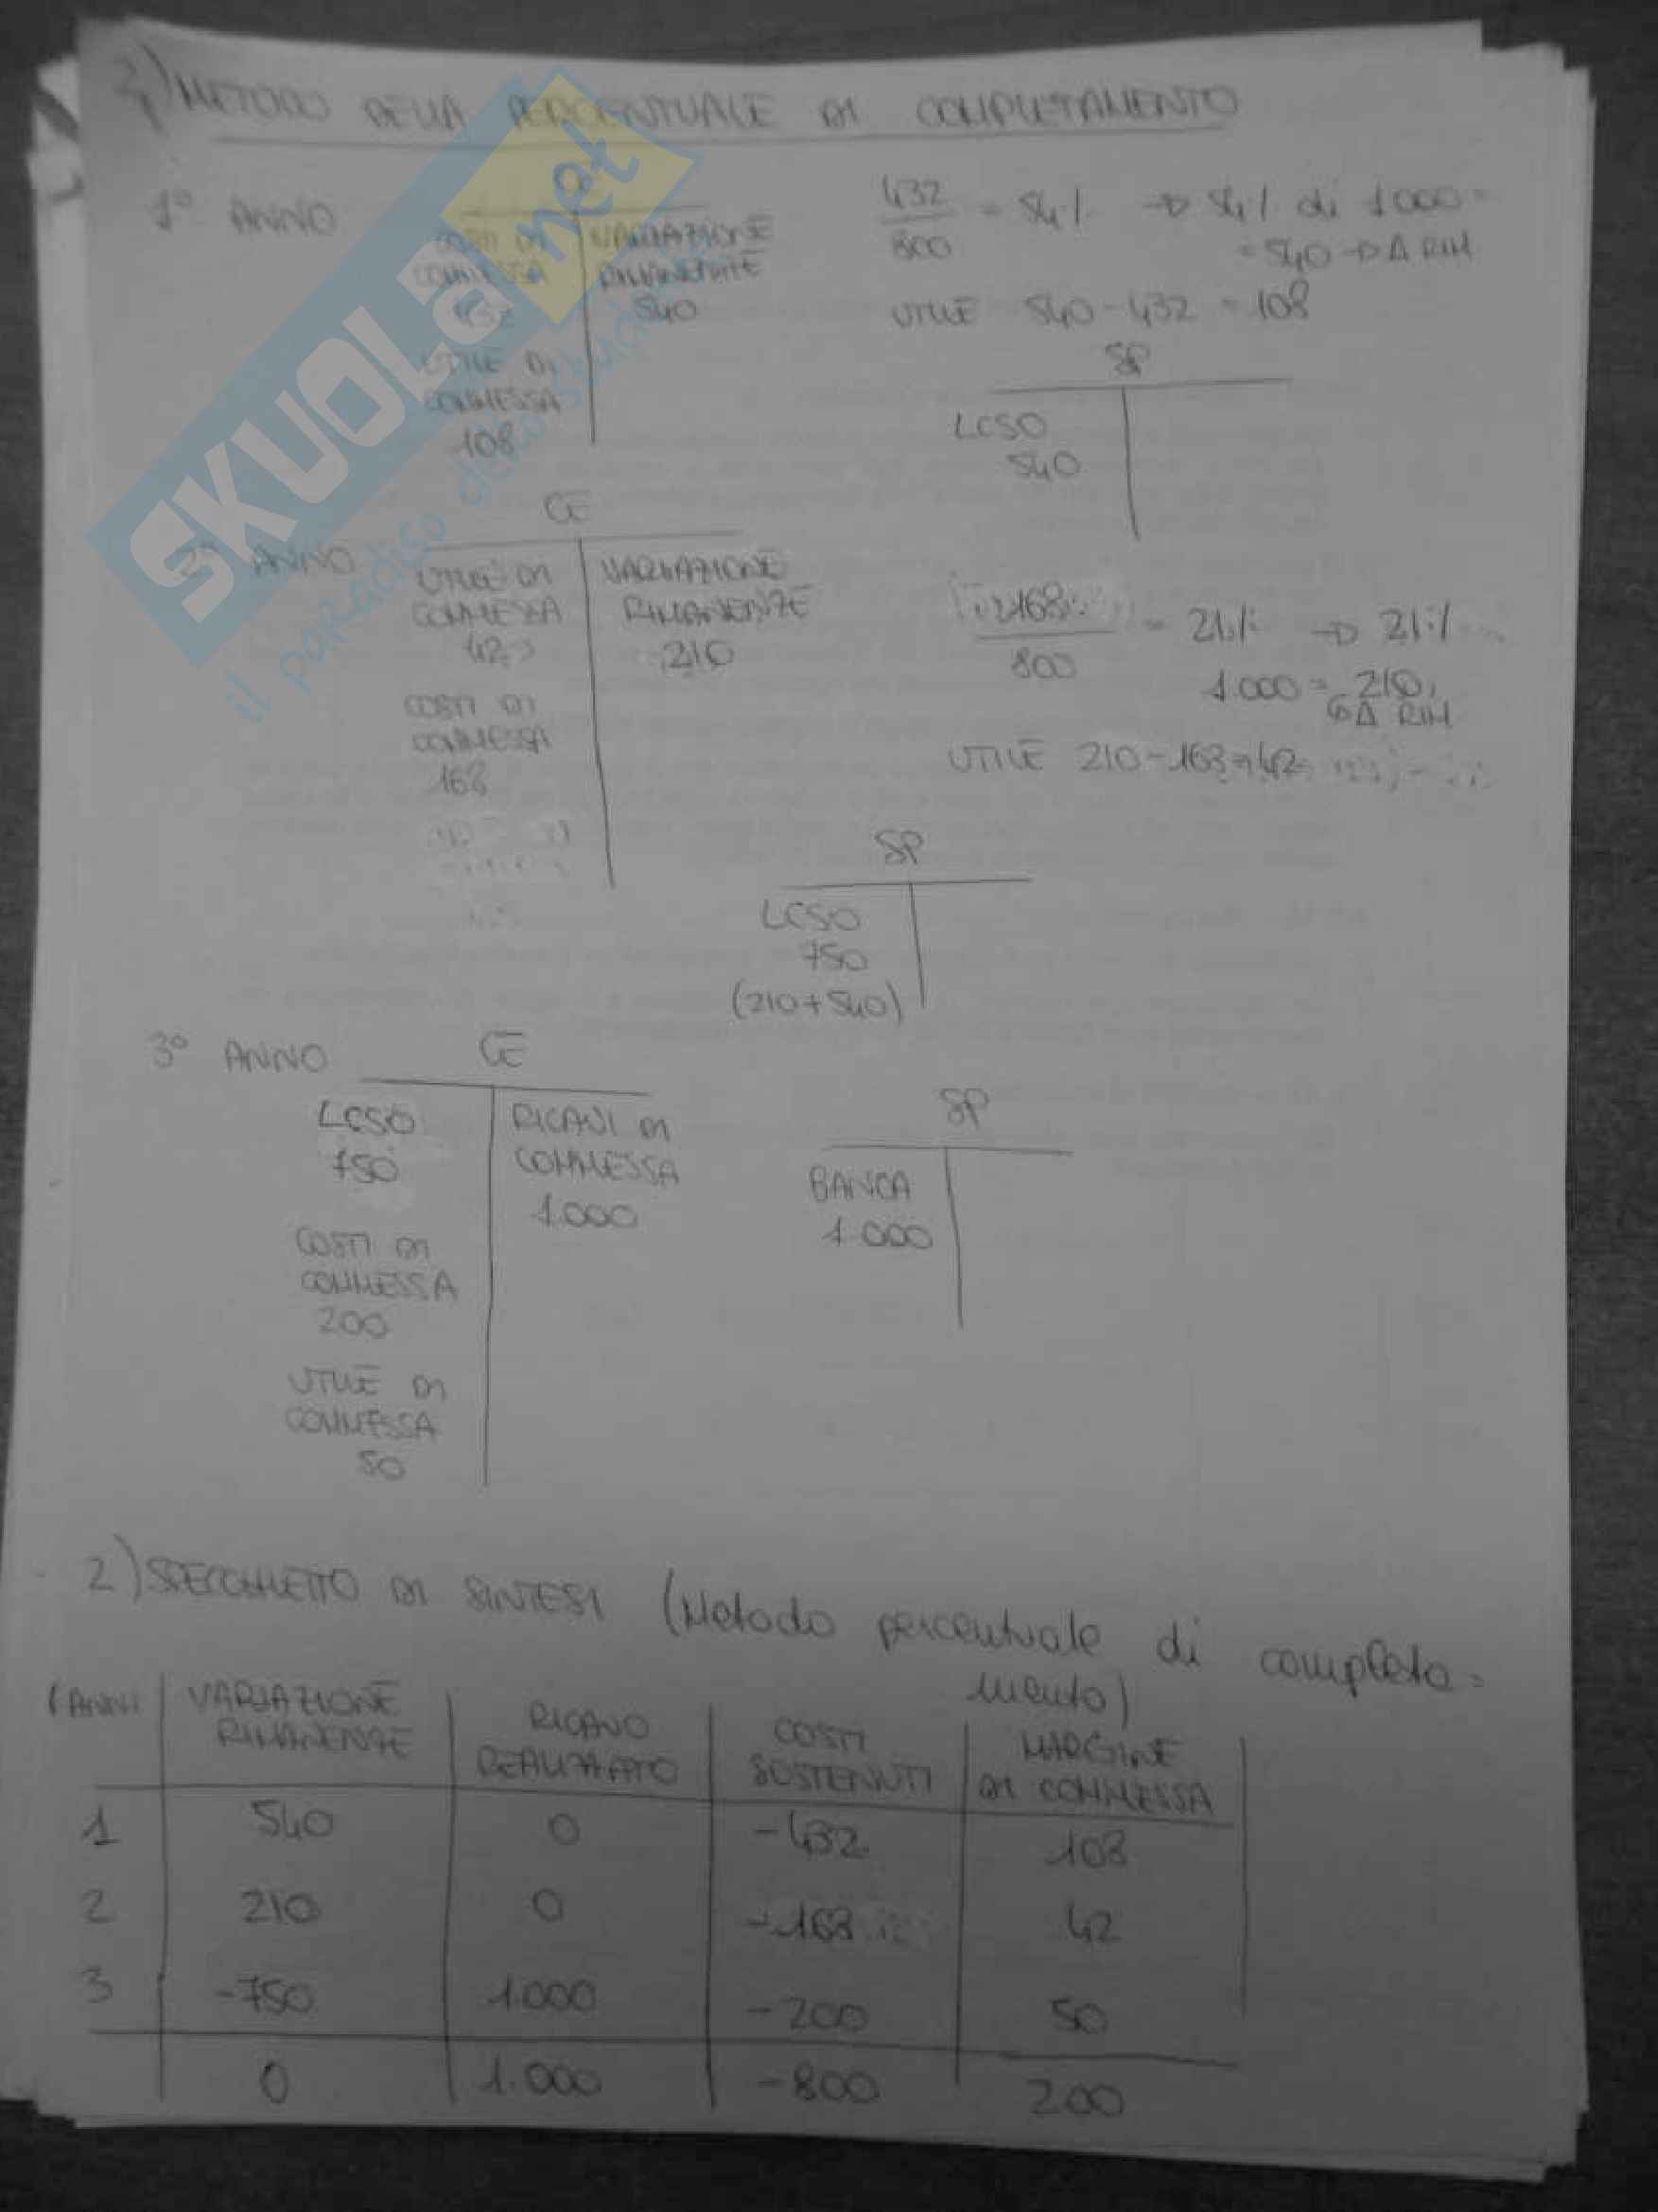 2) METODO DELLA PERCENTUALE DI COMPLETAMENTO
1° ANNO
CE
COSTI DI COMMESSA 432
VARIAZIONE RIMANENZE 540
UTILE DI COMMESSA 108
432/800 = 54% → 54% di 1000 =
= 540 → Δ RIM
UTILE 540 - 432 = 108
SP
LCSO
540
2° ANNO
CE
UTILE DI COMMESSA 42
VARIAZIONE RIMANENZE 210
COSTI DI COMMESSA 168
168/800 = 21% → 21%
1.000 = 210
↳ Δ RIM
UTILE 210 - 168 = 42
SP
LCSO
750
(210 + 540)
3° ANNO
CE
LCSO 750
RICAVI DI COMMESSA 1.000
COSTI DI COMMESSA 200
UTILE DI COMMESSA 50
SP
BANCA
1.000
2) SPECCHIETTO DI SINTESI (Metodo percentuale di completa=
mento)
ANNI VARIAZIONE RIMANENZE RICAVO REALIZZATO COSTI SOSTENUTI MARGINE DI COMMESSA
1 540 0 -432 108
2 210 0 -168 42
3 -750 1.000 -200 50
0 1.000 -800 200
SKUOLA.net
il paradiso dello